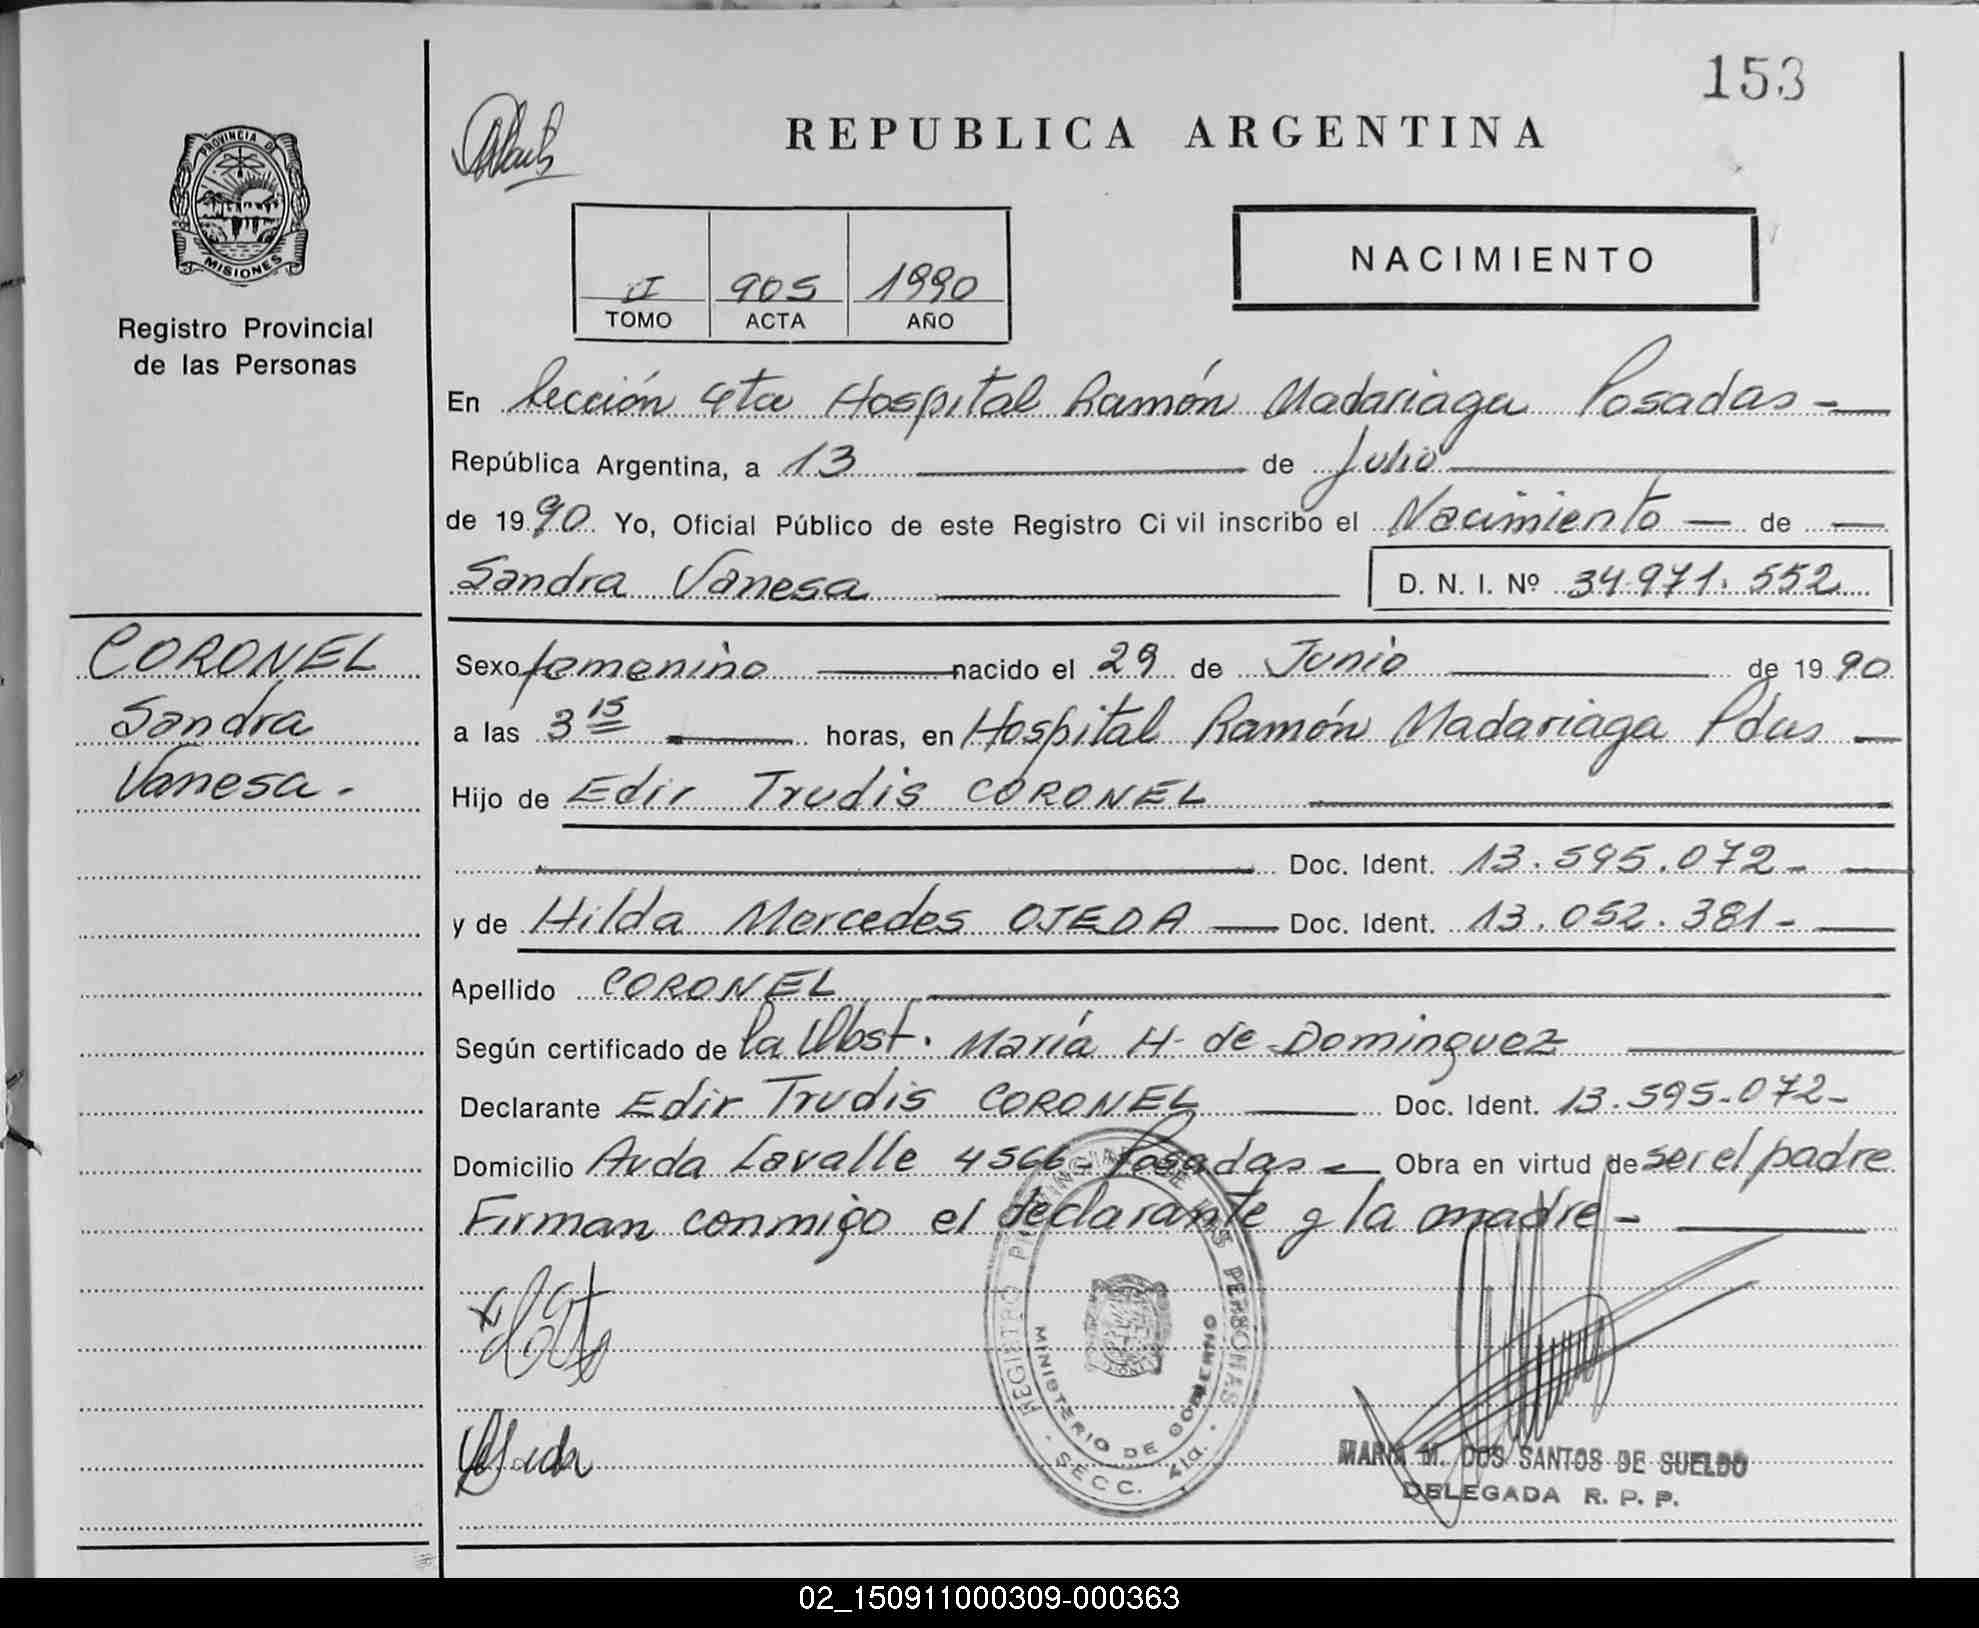 153
REPUBLICA ARGENTINA
PROVINCIA DE
MISIONES
Registro Provincial
de las Personas
NACIMIENTO
I 905 1990
TOMO ACTA AÑO
En Sección 4ta Hospital Ramón Madariaga Posadas -
República Argentina, a 13 de Julio
de 1990 Yo, Oficial Público de este Registro Civil inscribo el Nacimiento — de —
Sandra Vanesa D. N. I. Nº 34.971.552
CORONEL
Sandra
Vanesa.
Sexo femenino nacido el 29 de Junio de 1990
a las 3 15 horas, en Hospital Ramón Madariaga Pdas
Hijo de Edir Trudis CORONEL
Doc. Ident. 13.595.072-
y de Hilda Mercedes OJEDA Doc. Ident. 13.052.381-
Apellido CORONEL
Según certificado de la Obst. María H. de Dominguez
Declarante Edir Trudis CORONEL Doc. Ident. 13.595.072-
Domicilio Avda Lavalle 4566- Posadas - Obra en virtud de ser el padre
Firman conmigo el declarante y la madre -
REGISTRO PROVINCIAL DE LAS PERSONAS
MINISTERIO DE GOBIERNO
SECC. 4ta.
MARIA M. DOS SANTOS DE SUELDO
DELEGADA R. P. P.
02_150911000309-000363